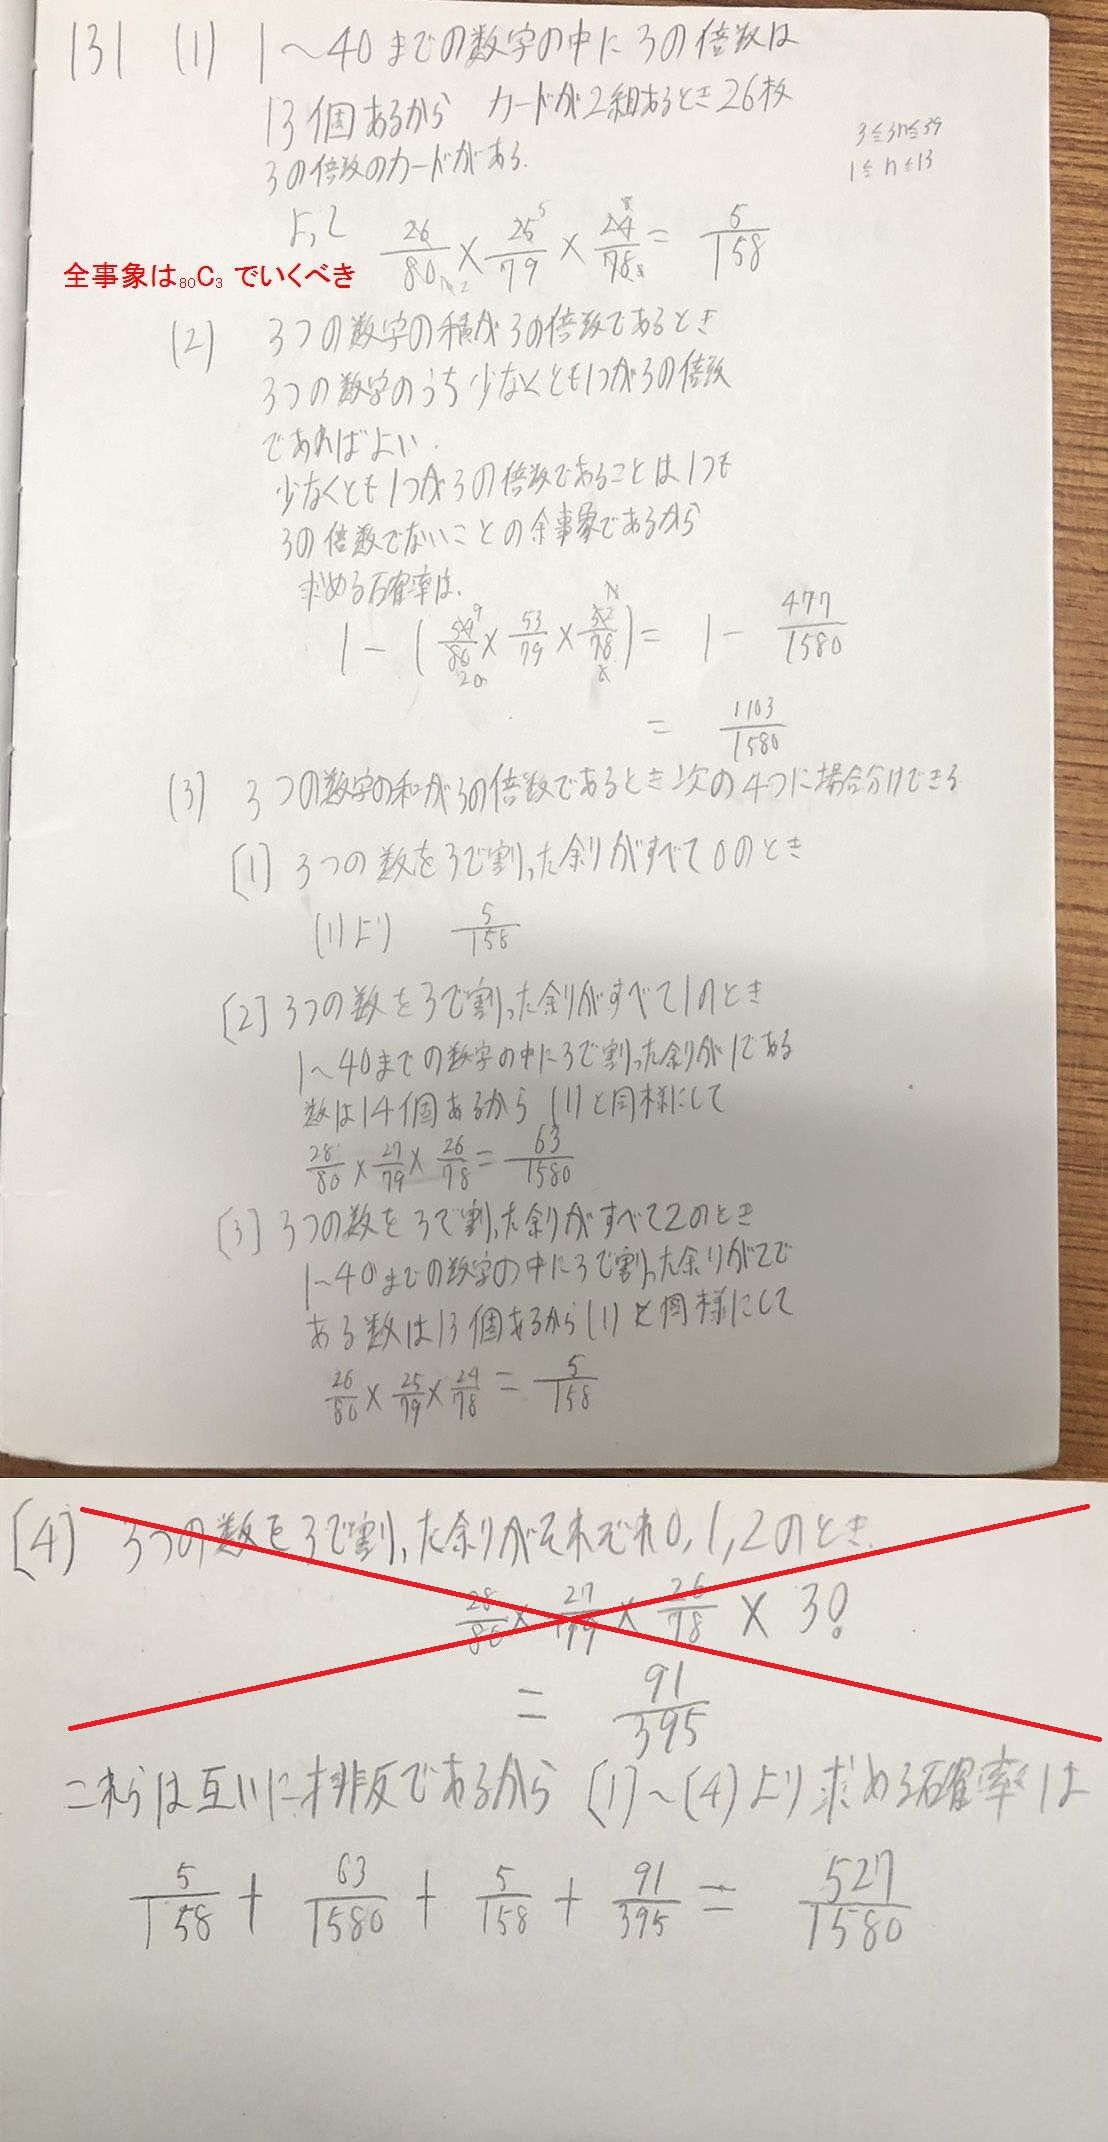 131 (1) 1～40までの数字の中に3の倍数は
13個あるから カードが2組あるとき26枚
3の倍数のカードがある.
3≦3n≦39
1≦n≦13
よって 26/80 × 25/79 × 24/78 = 5/158
全事象は₈₀C₃ でいくべき
(2) 3つの数字の積が3の倍数であるとき
3つの数字のうち少なくとも1つが3の倍数
であればよい.
少なくとも1つが3の倍数であることは1つも
3の倍数でないことの余事象であるから
求める確率は.
1 - (54/80 × 53/79 × 52/78) = 1 - 477/1580
= 1103/1580
(3) 3つの数字の和が3の倍数であるとき次の4つに場合分けできる
[1] 3つの数を3で割った余りがすべて0のとき
(1)より 5/158
[2] 3つの数を3で割った余りがすべて1のとき
1～40までの数字の中に3で割った余りが1である
数は14個あるから (1)と同様にして
28/80 × 27/79 × 26/78 = 63/1580
[3] 3つの数を3で割った余りがすべて2のとき
1～40までの数字の中に3で割った余りが2で
ある数は13個あるから(1)と同様にして
26/80 × 25/79 × 24/78 = 5/158
[4] 3つの数を3で割った余りがそれぞれ0,1,2のとき.
28/80 × 27/79 × 26/78 × 3!
= 91/395
これらは互いに排反であるから (1)～(4)より求める確率は
5/158 + 63/1580 + 5/158 + 91/395 = 527/1580